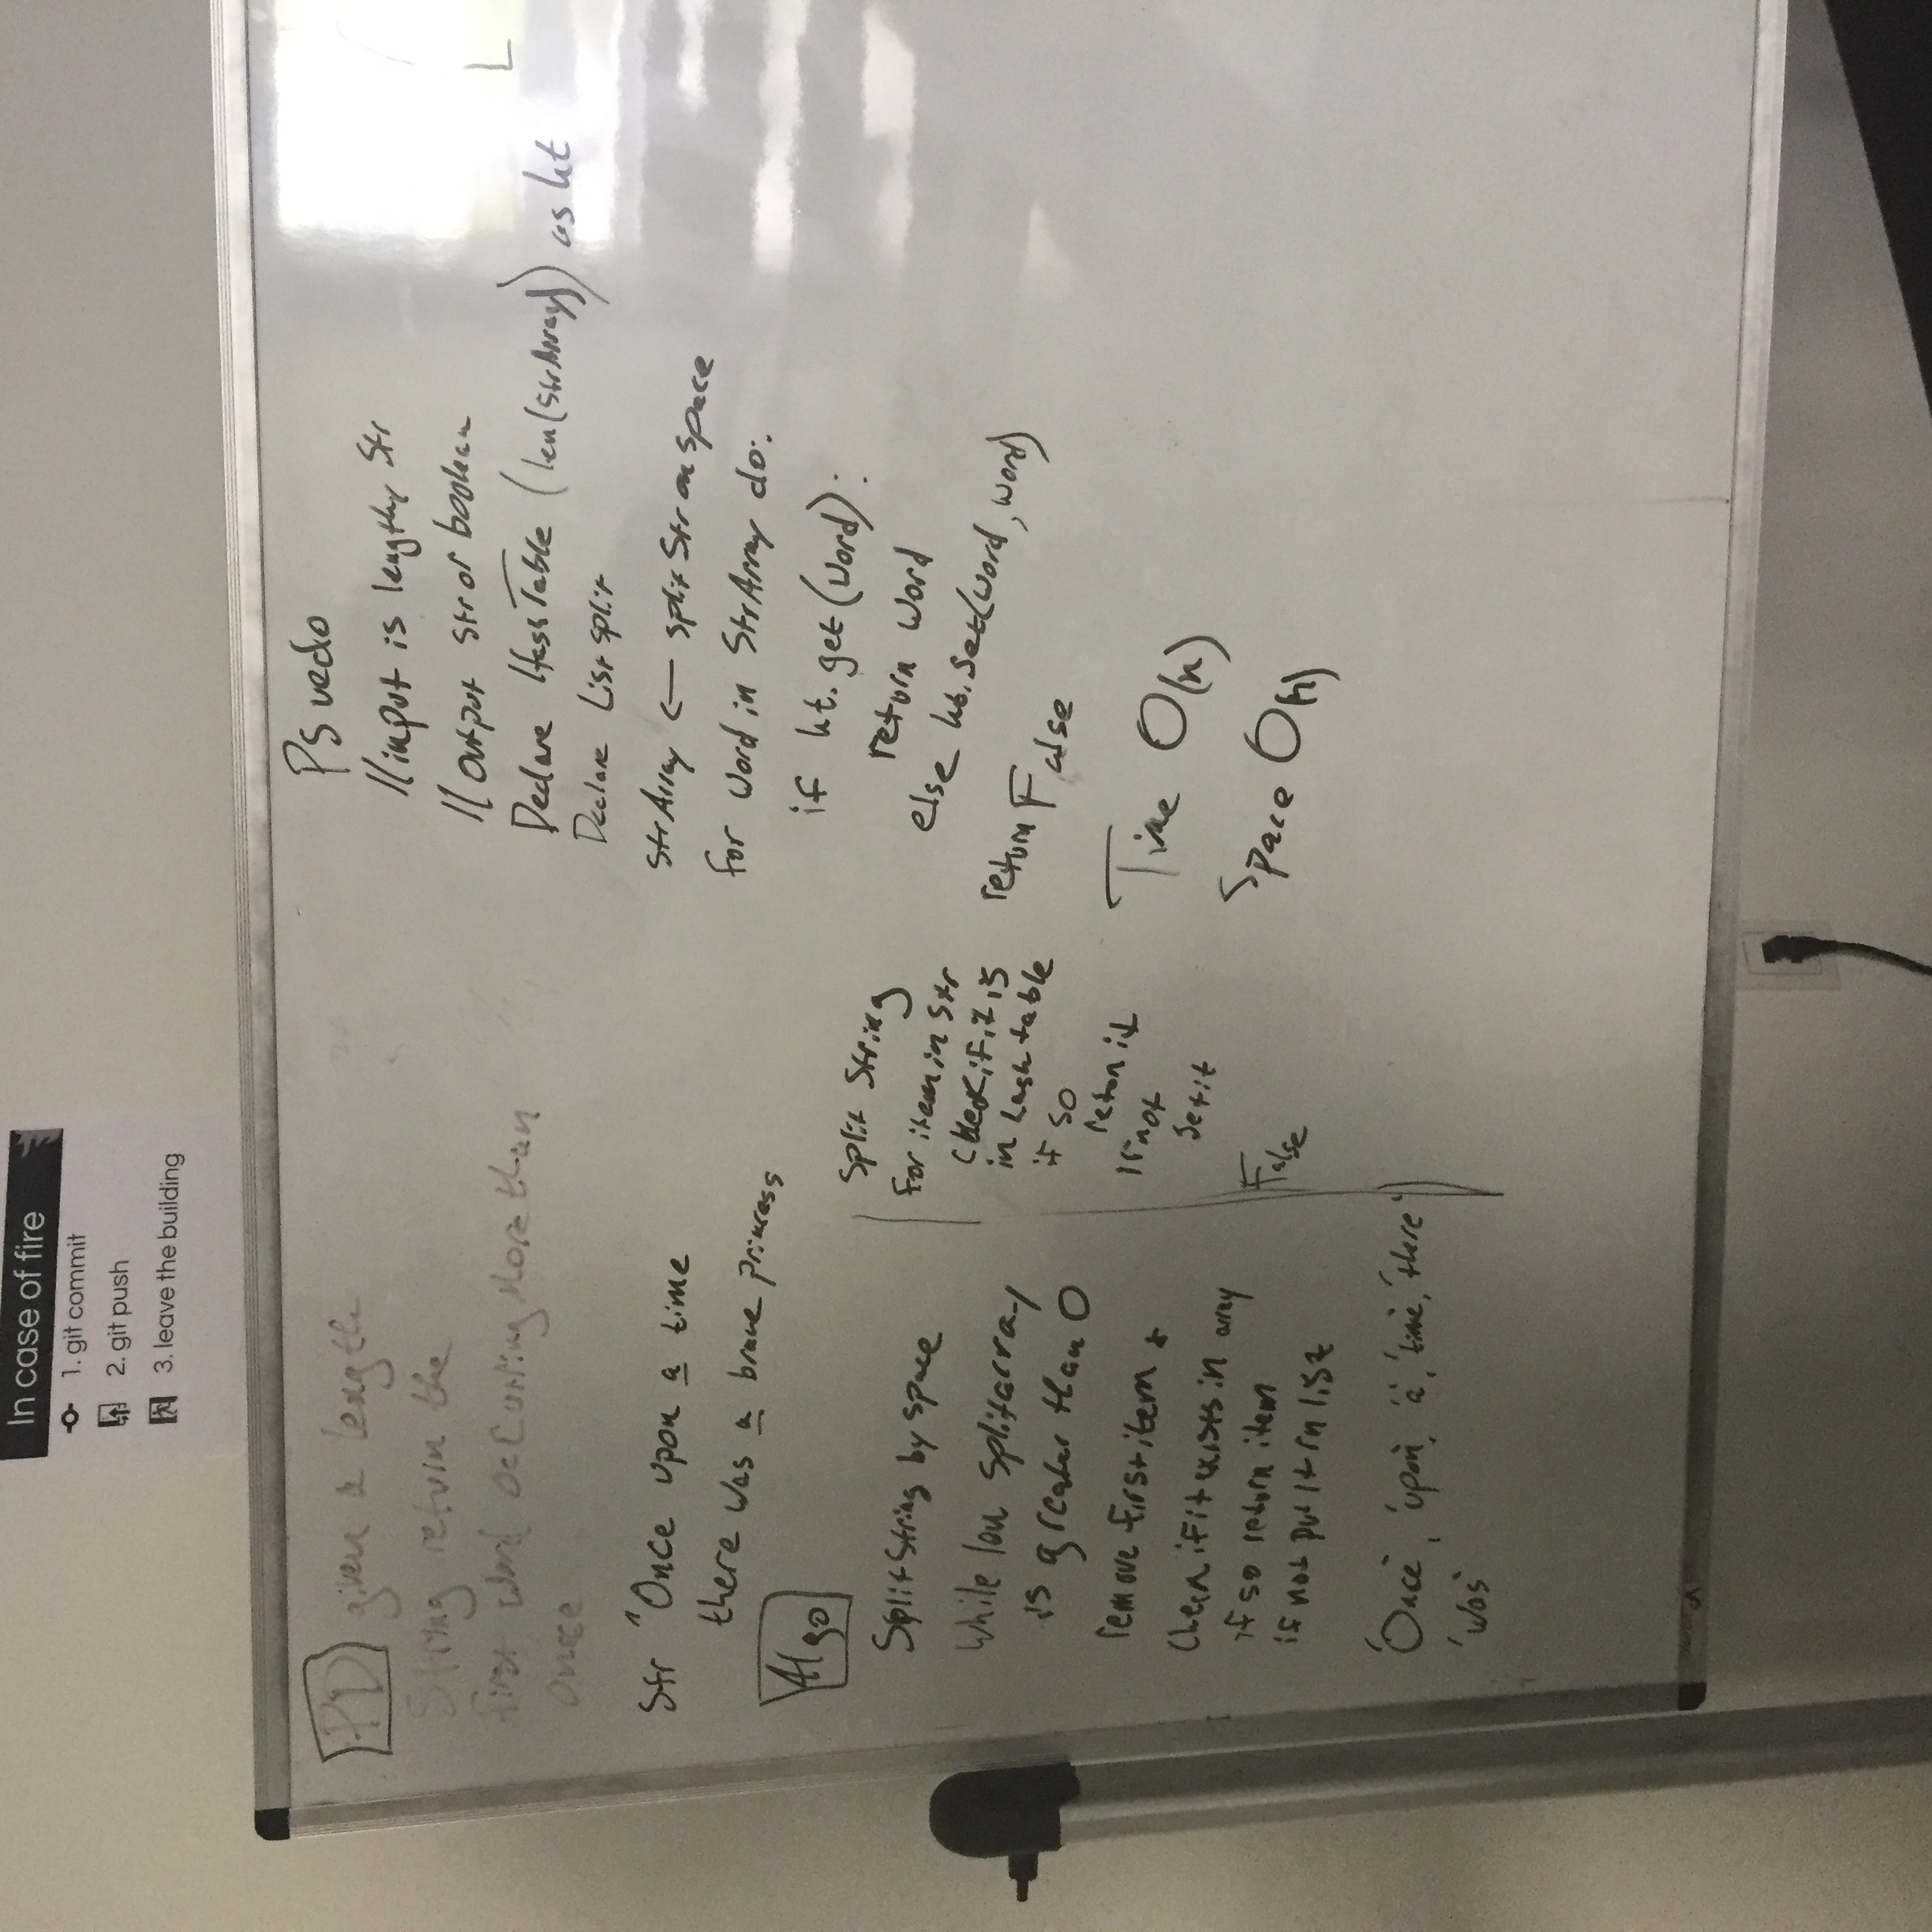 In case of fire
1. git commit
2. git push
3. leave the building
PD given a length
String return the
first word occurring more than
once
Str "Once upon a time
there was a brave princess
Algo
Split String by space
While len splitarray
is greater than 0
remove first item &
check if it exists in array
if so return item
if not put it in list
'Once', 'upon', 'a', 'time', 'there'
'was'
Split String
for item in str
check if it is
in hash table
if so
retun it
if not
set it
False
Psuedo
//input is lengthy Str
//output str or boolean
Declare HashTable (len(strArray)) as ht
Declare List split
strArray ← split Str on space
for word in StrArray do:
if ht.get(word):
return word
else ht.set(word, word)
return False
Time O(n)
Space O(n)